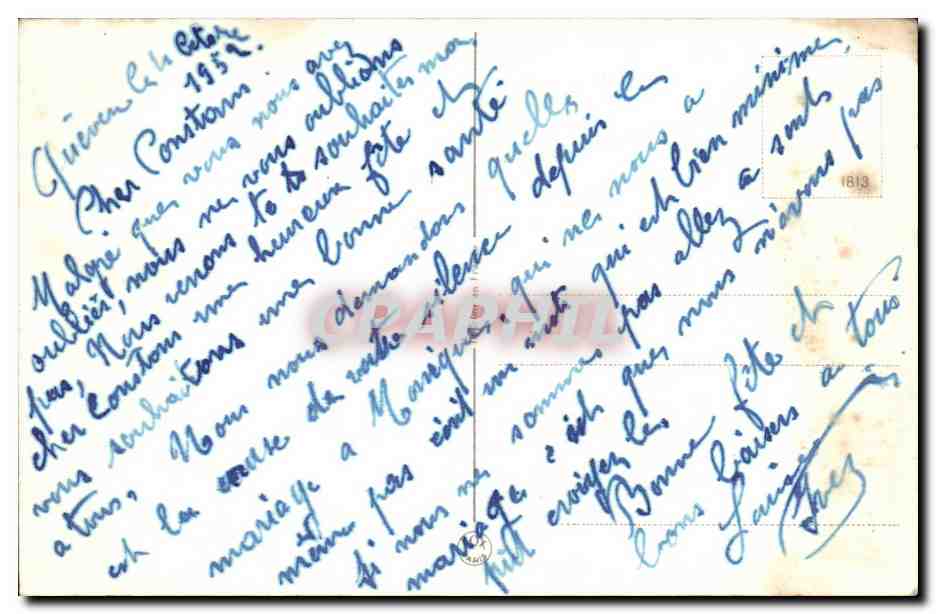 Quéven le 4 Octobre
1952.
Cher Constans
Malgré que vous nous avez
oubliés, nous ne vous oublions
pas, Nous venons te souhaites mon
cher Constans une heureuse fête et
vous souhaitons une bonne santé
a tous, Nous nous demandons quelle
est la cause de votre silence depuis le
mariage a Monique, qui nes nous a
même pas écrit un mot qui est bien minime,
si nous ne sommes pas allez a sont
mariage c'est que nous n'avons pas
put croyez les,
Bonne fête et
bons baisers a tous
Louise
Yvez
1813
CRAPHIL